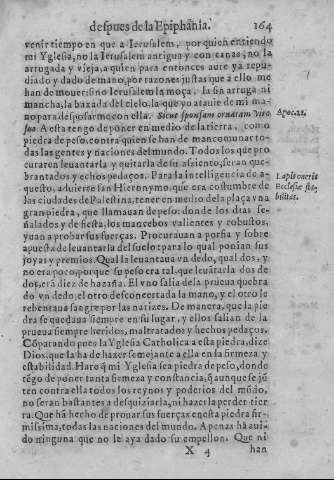 despues de la Epiphānia. 164
venir tiempo en que a Ierusalem, por quien entiendo
mi Yglesia, no la Ierusalem antigua y con canas, no la
arrugada y vieja, a quien para entonces aure ya repu-
diado y dado de mano, por razones justas que a ello me
han de mouer: si no Ierusalem la moça, la sin arruga ni
mancha, la baxada del cielo, la que yo atauie de mi ma-
no para desposarme con ella. Sicut sponsam ornatam viro
suo A esta tengo de poner en medio de la tierra, como
piedra de peso, contra quien se han de mancomunar to-
das las gentes y naciones del mundo. Todos los que pro
curaren leuantarla y quitarla de su assiento, seran que-
brantados y echos pedaços. Para la intelligencia de a-
questo, aduierte san Hieronymo, que era costumbre de
las ciudades de Palestina, tener en medio de la plaça vna
gran piedra, que llamauan de peso: donde los dias se-
ñalados y de fiesta, los mancebos valientes y robustos,
yuan a prouar sus fuerças. Procurauan a porfia y sobre
apuesta de leuantarla del suelo: para lo qual ponian sus
joyas y premios. Qual la leuantaua vn dedo, qual dos, y
no era poco, porque su peso era tal, que leuātarla dos de
dos, erā diez de hazaña. El vno salia de la prueua quebra
do vn dedo, el otro desconcertada la mano, y el otro le
rebentaua sangre por las narizes. De manera, que la pie
dra se quedaua siempre en su lugar, y ellos salian de la
prueua siempre heridos, maltratados y hechos pedaços.
Cōparando pues la Yglesia Catholica a esta piedra, dize
Dios, que la ha de hazer semejante a ella en la firmeza y
estabilidad. Hare q̄ mi Yglesia sea piedra de peso, donde
tēgo de poner tanta firmeza y constancia, q̄ aunque se jū
ten contra ella todos los reynos y poderios del mūdo,
no seran bastantes a desquiziarla, ni hazerla perder tier
ra. Que hā hecho de prouar sus fuerças en esta piedra fir-
missima, todas las naciones del mundo. Apenas hā aui-
do ninguna que no le aya dado su empellon. Que ni
X 4 han
Apoc. 21.
Lapis oneris
Ecclesiæ sta-
bilitas.